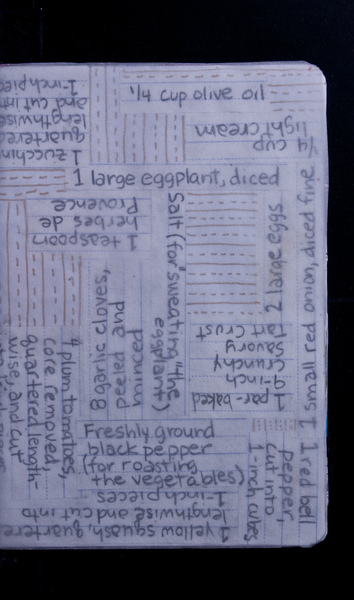 1/4 cup olive oil
1/4 cup
light cream
1 zucchini
quartered
lengthwise
and cut into
1-inch pieces
1 large eggplant, diced
1 teaspoon
herbes de
Provence
Salt (for "sweating" the
eggplant)
2 large eggs
1 small red onion, diced fine
8 garlic cloves,
peeled and
minced
4 plum tomatoes,
core removed,
quartered length-
wise, and cut
1 par-baked
9-inch
crunchy
savory
tart crust
Freshly ground
black pepper
(for roasting
the vegetables)
1 red bell
pepper,
cut into
1-inch cubes
1 yellow squash, quartere
lengthwise and cut into
1-inch pieces